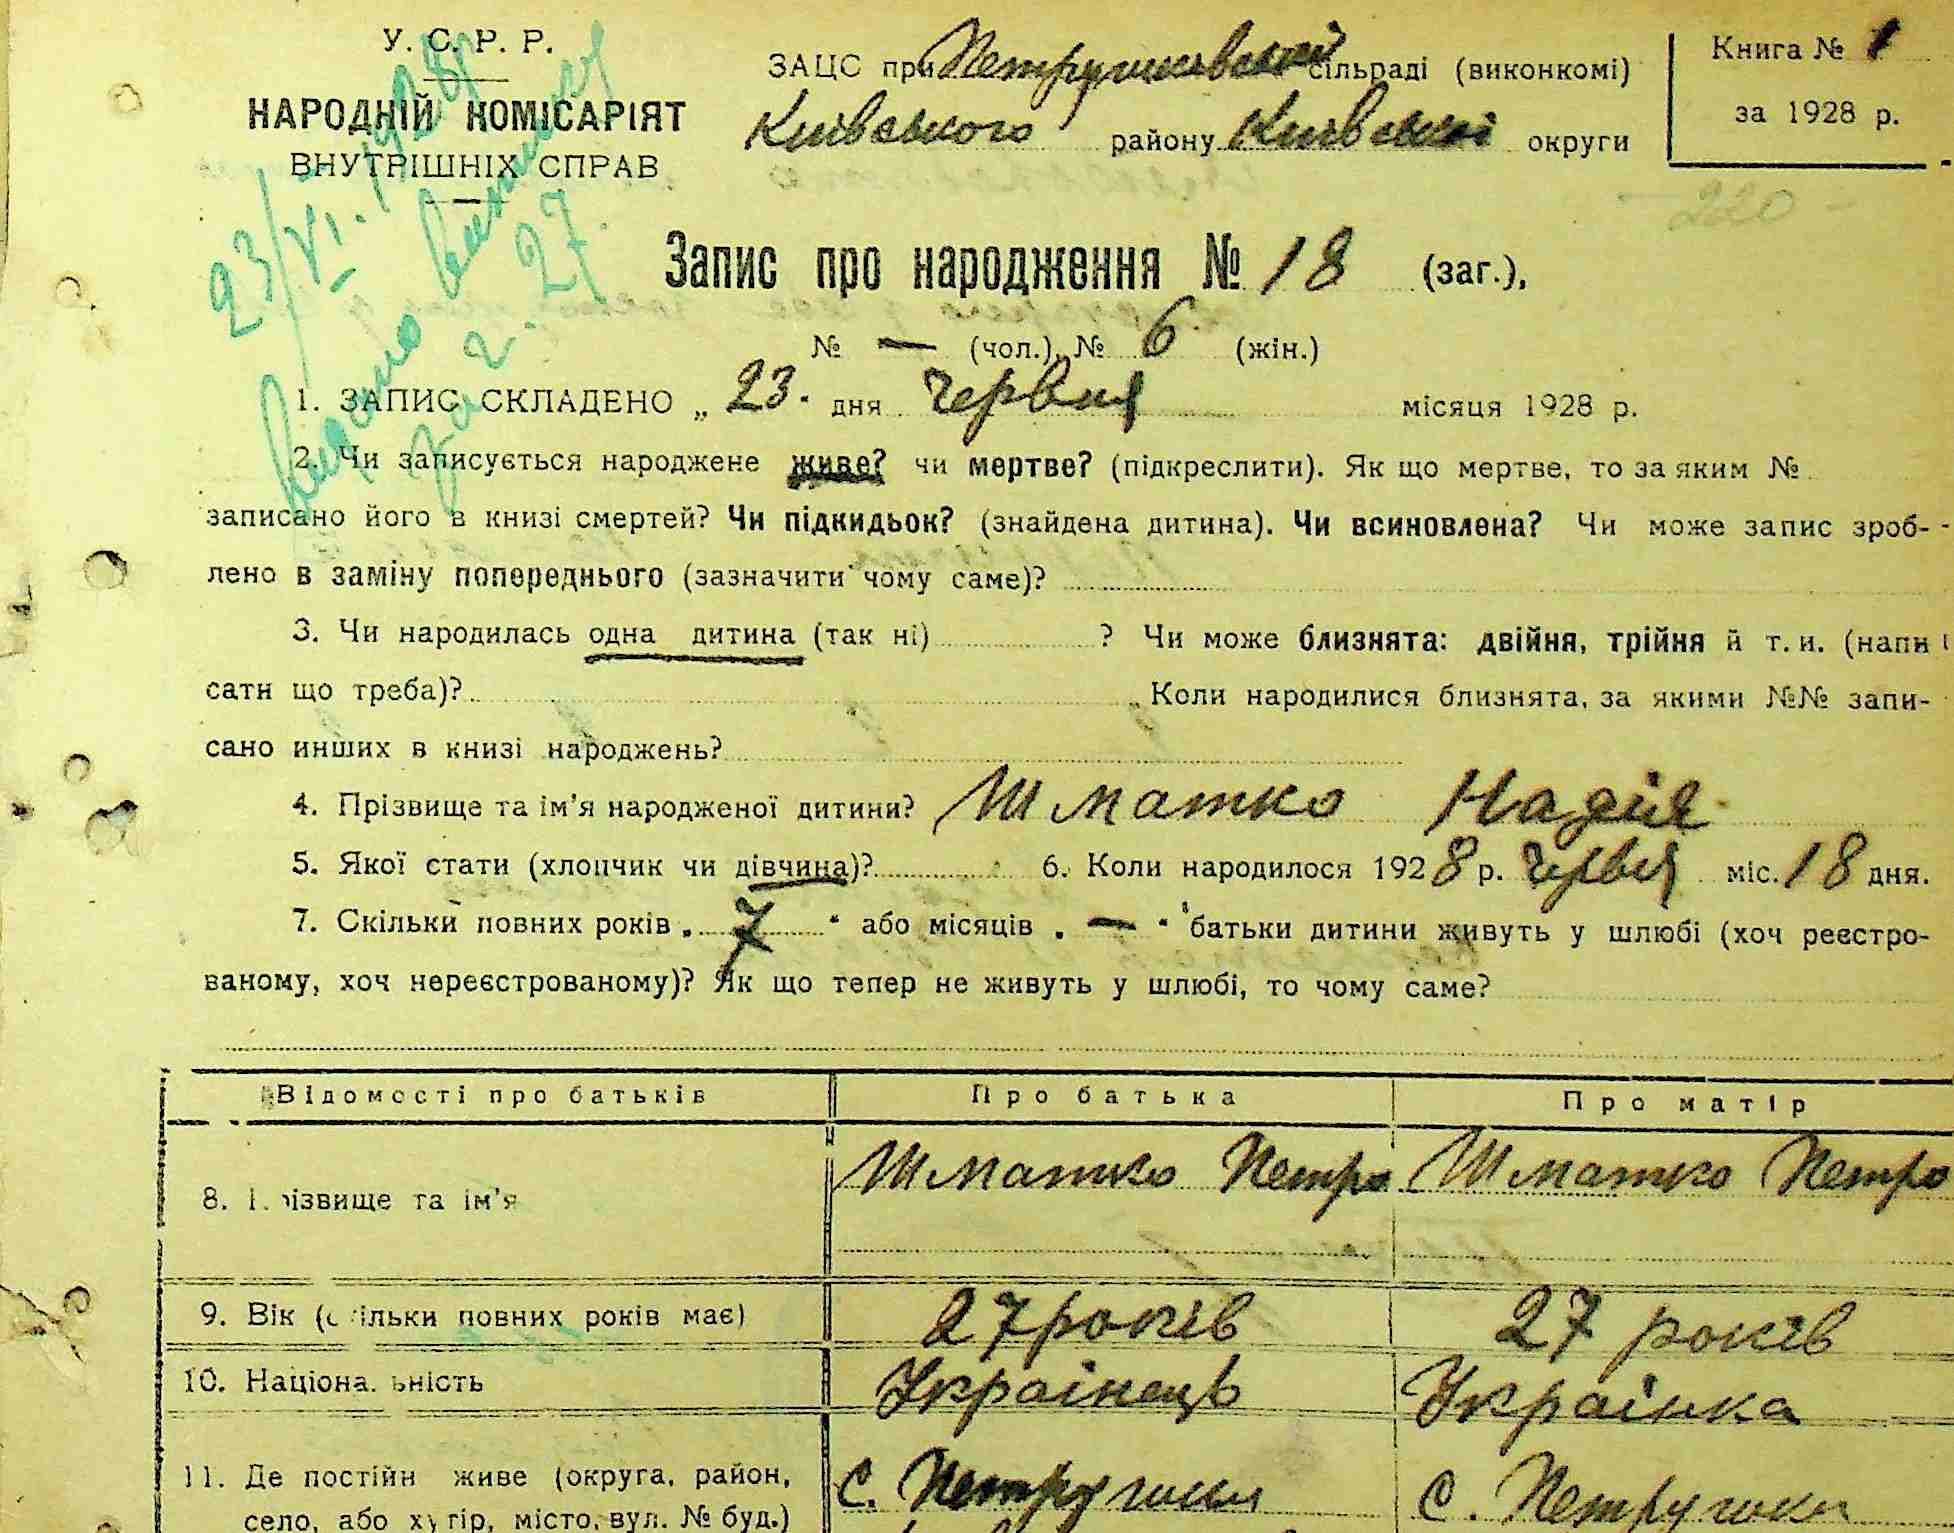 У. С. Р. Р.
НАРОДНІЙ КОМІСАРІЯТ
ВНУТРІШНІХ СПРАВ
ЗАЦС при Петрушківській сільраді (виконкомі)
Київського району Київської округи
Книга № 1
за 1928 р.
- 220 -
23/VI. 1928
27
Запис про народження № 18 (заг.),
№ — (чол.), № 6 (жін.)
1. ЗАПИС СКЛАДЕНО „ 23. дня червня місяця 1928 р.
2. Чи записується народжене живе? чи мертве? (підкреслити). Як що мертве, то за яким №
записано його в книзі смертей? Чи підкидьок? (знайдена дитина). Чи всиновлена? Чи може запис зроб-
лено в заміну попереднього (зазначити чому саме)?
3. Чи народилась одна дитина (так ні) ? Чи може близнята: двійня, трійня й т. и. (напи
сати що треба)? Коли народилися близнята, за якими №№ запи-
сано инших в книзі народжень?
4. Прізвище та ім'я народженої дитини? Шматко Надія
5. Якої стати (хлопчик чи дівчина)? 6. Коли народилося 1928 р. червня міс. 18 дня.
7. Скільки повних років „ 7 “ або місяців „ — “ батьки дитини живуть у шлюбі (хоч реєстро-
ваному, хоч нереєстрованому)? Як що тепер не живуть у шлюбі, то чому саме?
Відомості про батьків Про батька Про матір
8. Прізвище та ім'я Шматко Петро Шматко Петро
9. Вік (скільки повних років має) 27 років 27 років
10. Національність Українець Українка
11. Де постійн живе (округа, район, с. Петрушки с. Петрушки
село, або хутір, місто, вул. № буд.)